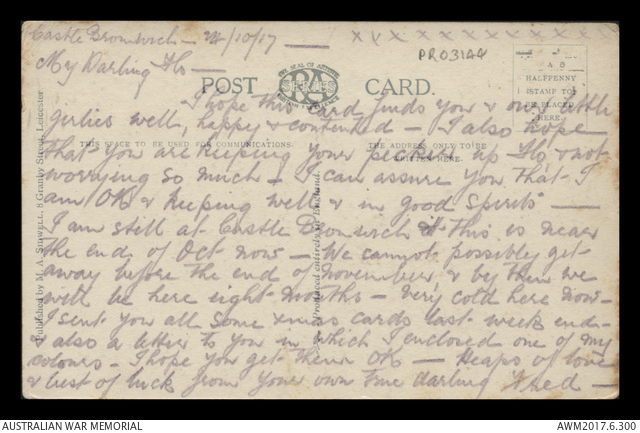 Castle Bromwich - 22/10/17 - x x x x x x x x x x x x x
PRO3144
My Darling Flo -
POST CARD.
A
HALFPENNY
STAMP TO
BE PLACED
HERE.
I hope this card finds you & our little
girlies well, happy & contented - I also hope
THIS SPACE TO BE USED FOR COMMUNICATIONS.
THE ADDRESS ONLY TO BE
WRITTEN HERE.
that you are keeping your pecker up Flo & not
worrying so much - I can assure you that I
am OK & keeping well & in good spirits -
I am still at Castle Bromwich & this is near
the end of Oct now - We cannot possibly get
away before the end of November, & by then we
will be here eight months - Very cold here now -
I sent you all some xmas cards last week end -
& also a letter to you in which I enclosed one of my
colours - I hope you get them OK - Heaps of love
& best of luck from your own true darling Fred -
Published by M. A. SIDWELL, 8 Granby Street, Leicester
Produced entirely in England.
AUSTRALIAN WAR MEMORIAL
AWM2017.6.300